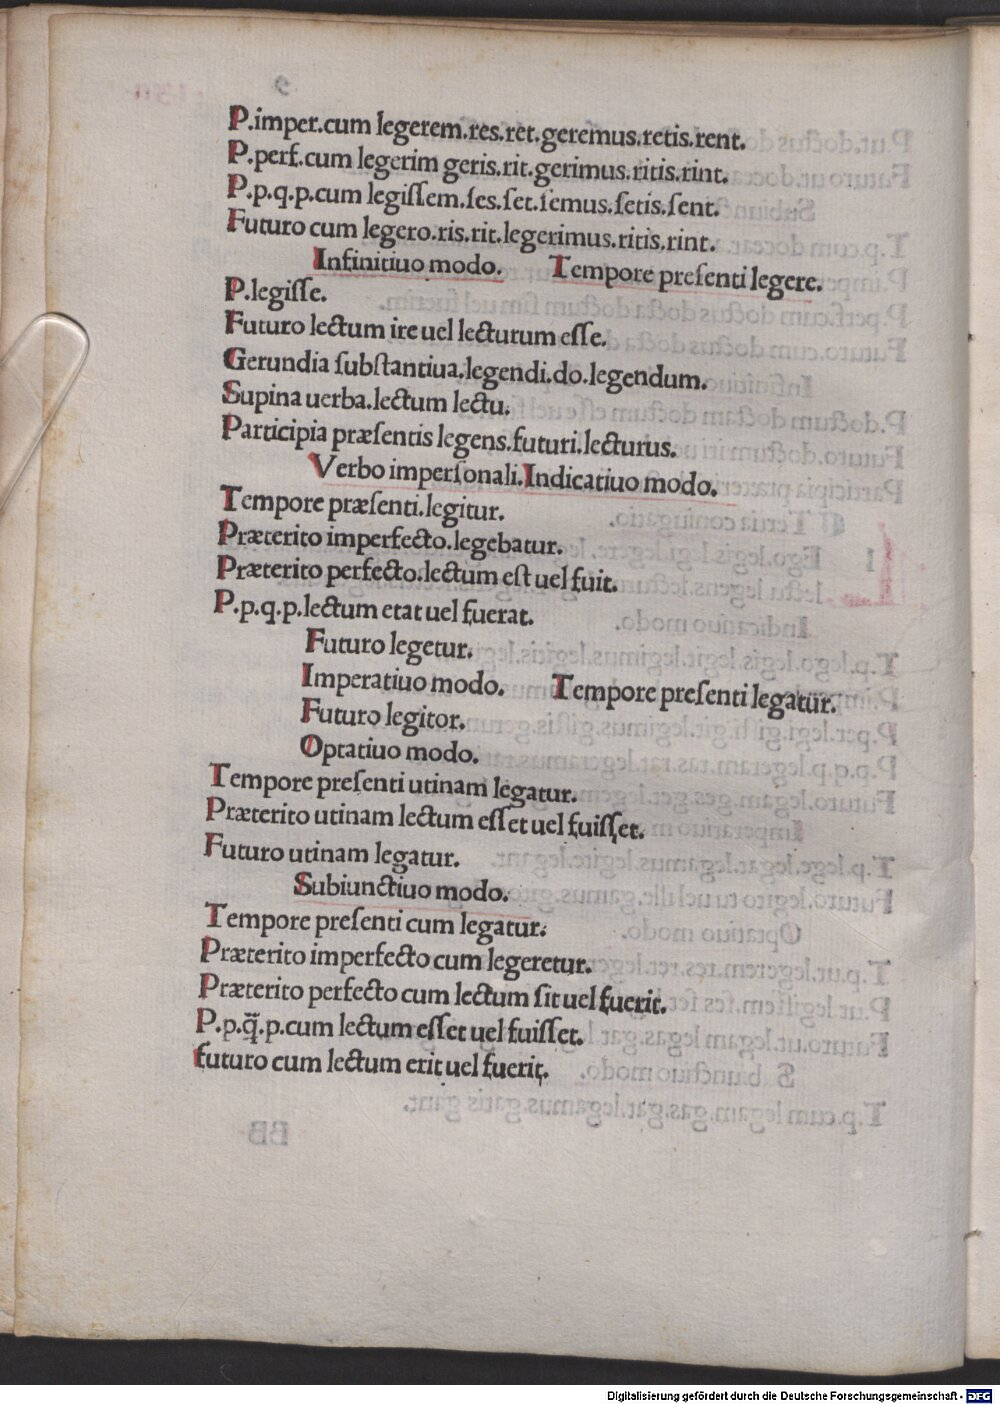 P.imper.cum legerem.res.ret.geremus.retis.rent.
P.perf.cum legerim geris.rit.gerimus.ritis.rint.
P.p.q.p.cum legiſſem.ſes.ſet.ſemus.ſetis.ſent.
Futuro cum legero.ris.rit.legerimus.ritis.rint.
Infinitiuo modo. Tempore preſenti legere.
P.legiſſe.
Futuro lectum ire uel lecturum eſſe.
Gerundia ſubſtantiua.legendi.do.legendum.
Supina uerba.lectum lectu.
Participia præſentis legens.futuri.lecturus.
Verbo imperſonali.Indicatiuo modo.
Tempore præſenti.legitur.
Præterito imperfecto.legebatur.
Præterito perfecto.lectum eſt uel fuit.
P.p.q.p.lectum etat uel fuerat.
Futuro legetur.
Imperatiuo modo. Tempore preſenti legatur.
Futuro legitor.
Optatiuo modo.
Tempore preſenti utinam legatur.
Præterito utinam lectum eſſet uel fuiſſet.
Futuro utinam legatur.
Subiunctiuo modo.
Tempore preſenti cum legatur.
Præterito imperfecto cum legeretur.
Præterito perfecto cum lectum ſit uel fuerit.
P.p.q̃.p.cum lectum eſſet uel fuiſſet.
futuro cum lectum erit uel fuerit.
Digitalisierung gefördert durch die Deutsche Forschungsgemeinschaft - DFG